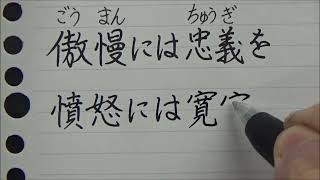 ごう まん ちゅうぎ
傲慢には忠義を
憤怒には寛